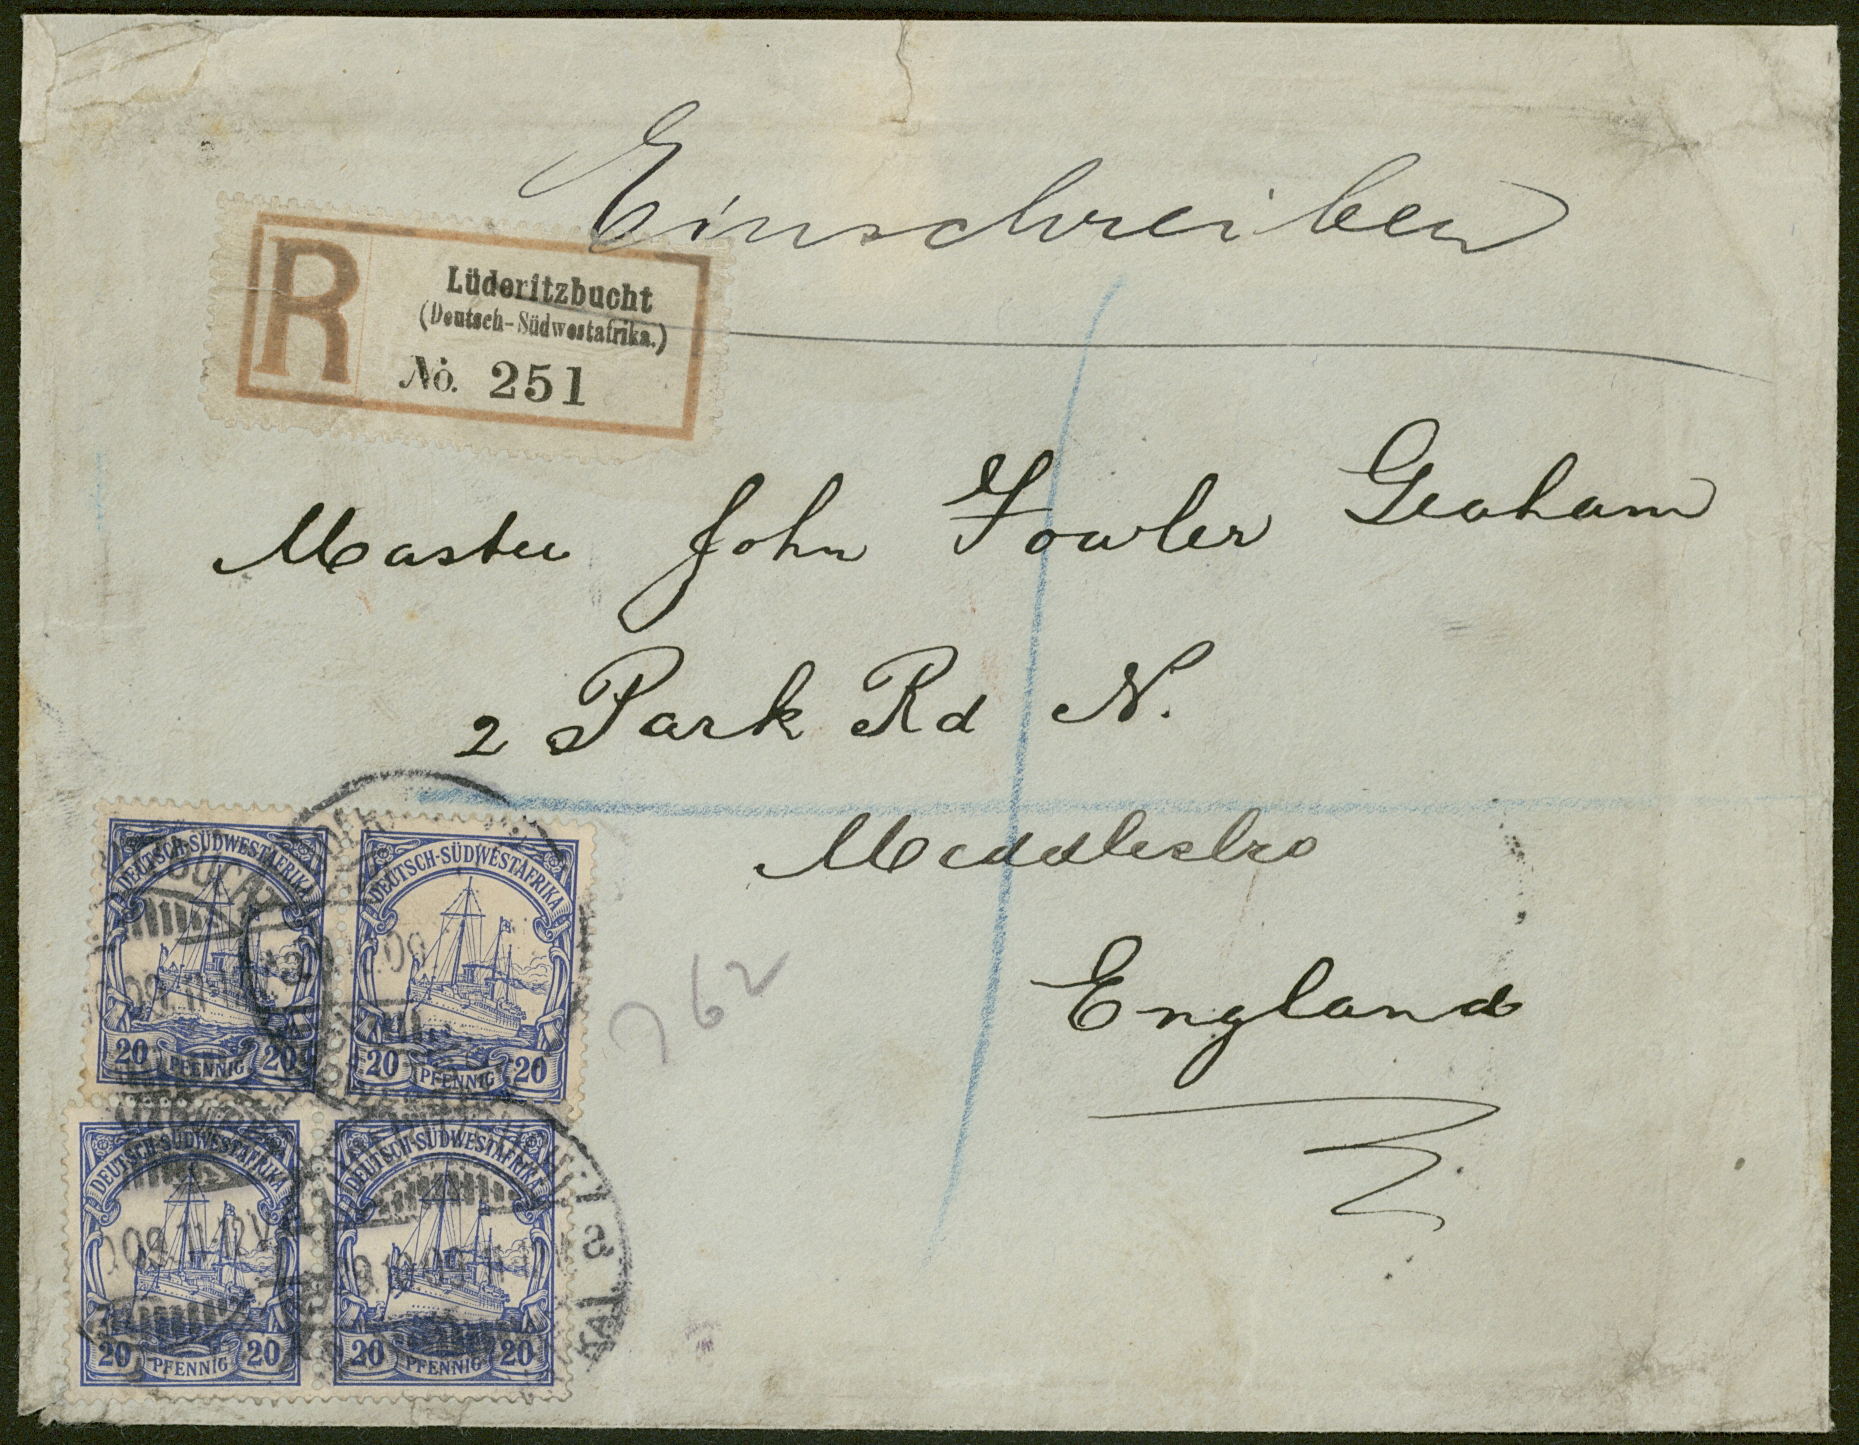 Einschreiben
R
Lüderitzbucht
(Deutsch-Südwestafrika.)
No. 251
Master John Fowler Graham
2 Park Rd N.
Middlesbro
England
762
DEUTSCH-SÜDWESTAFRIKA
20 PFENNIG 20
DEUTSCH-SÜDWESTAFRIKA
20 PFENNIG 20
DEUTSCH-SÜDWESTAFRIKA
20 PFENNIG 20
DEUTSCH-SÜDWESTAFRIKA
20 PFENNIG 20